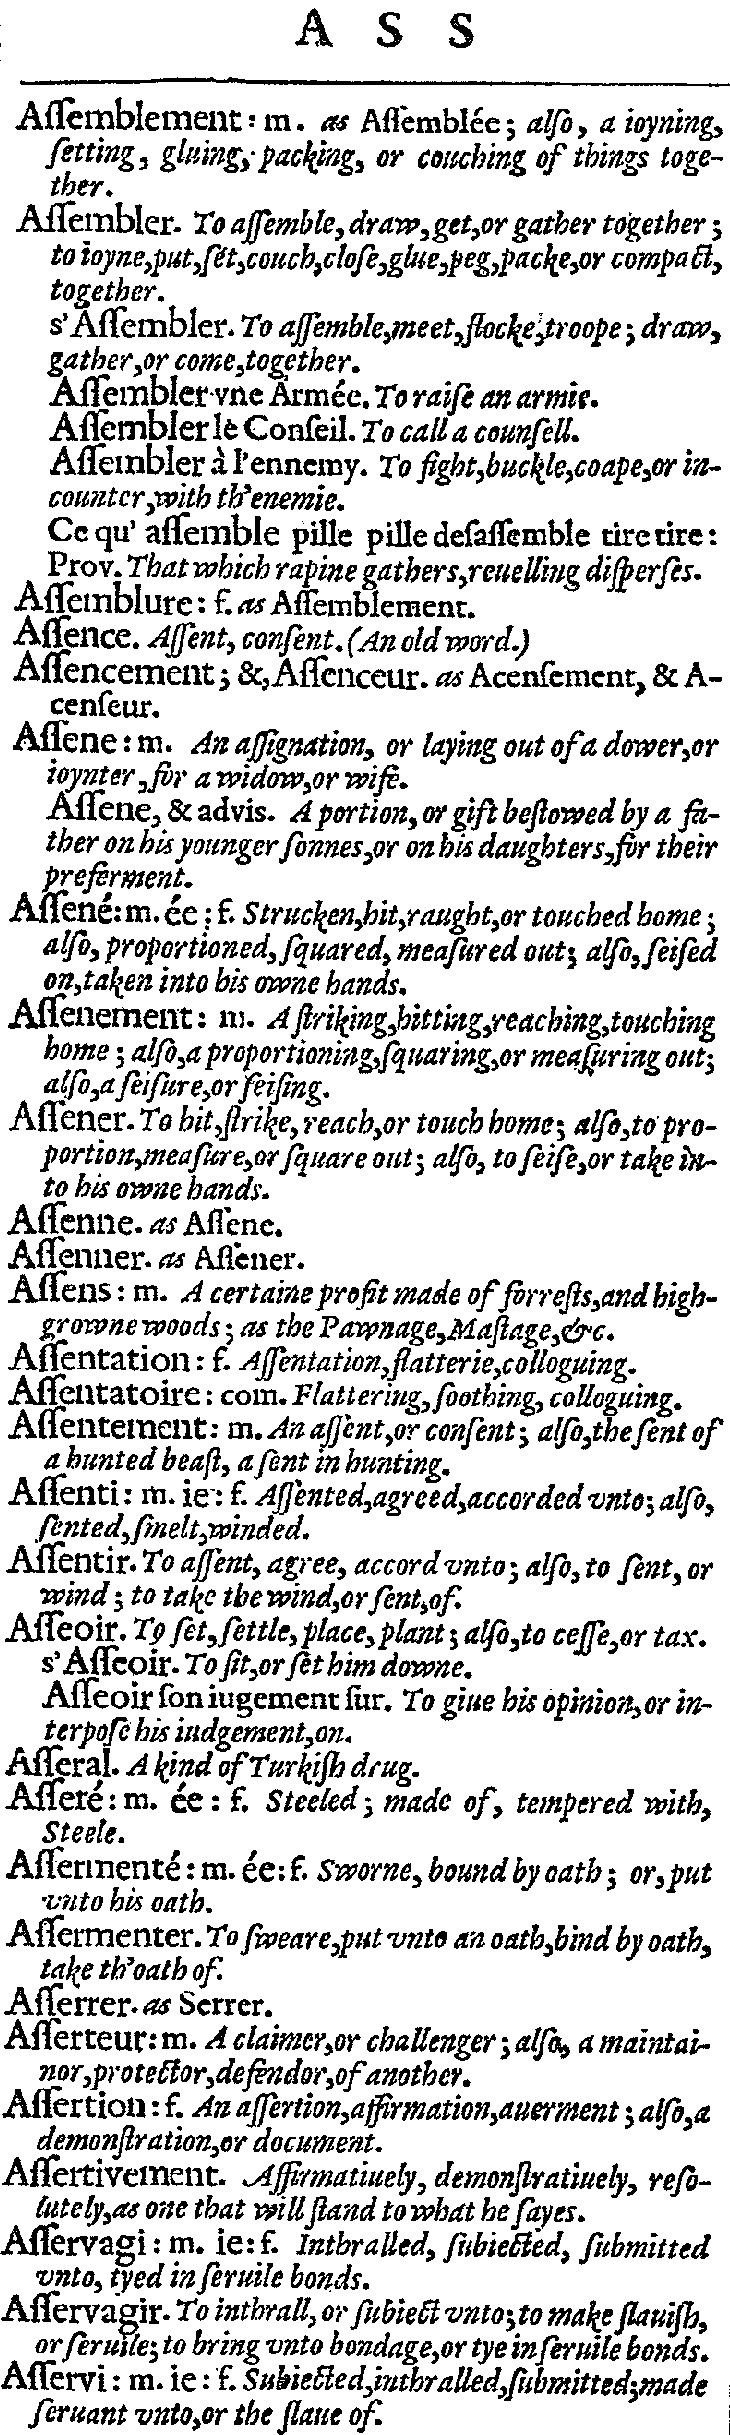 A S S
Aſſemblement : m. as Aſſemblée ; alſo, a ioyning,
ſetting, gluing, packing, or couching of things toge-
ther.
Aſſembler. To aſſemble, draw, get, or gather together ;
to ioyne, put, ſet, couch, cloſe, glue, peg, packe, or compact,
together.
s'Aſſembler. To aſſemble, meet, flocke, troope ; draw,
gather, or come, together.
Aſſembler vne Armée. To raiſe an armie.
Aſſembler le Conſeil. To call a counſell.
Aſſembler à l'ennemy. To fight, buckle, coape, or in-
counter, with th'enemie.
Ce qu' aſſemble pille pille deſaſſemble tire tire :
Prov. That which rapine gathers, reuelling diſperſes.
Aſſemblure : f. as Aſſemblement.
Aſſence. Aſſent, conſent. (An old word.)
Aſſencement ; &, Aſſenceur. as Acenſement, & A-
cenſeur.
Aſſene : m. An aſſignation, or laying out of a dower, or
ioynter, for a widow, or wife.
Aſſene, & advis. A portion, or gift beſtowed by a fa-
ther on his younger ſonnes, or on his daughters, for their
preferment.
Aſſené : m. ée : f. Strucken, hit, raught, or touched home ;
alſo, proportioned, ſquared, meaſured out ; alſo, ſeiſed
on, taken into his owne hands.
Aſſenement : m. A ſtriking, hitting, reaching, touching
home ; alſo, a proportioning, ſquaring, or meaſuring out ;
alſo, a ſeiſure, or ſeiſing.
Aſſener. To hit, ſtrike, reach, or touch home ; alſo, to pro-
portion, meaſure, or ſquare out ; alſo, to ſeiſe, or take in-
to his owne hands.
Aſſenne. as Aſſene.
Aſſenner. as Aſſener.
Aſſens : m. A certaine profit made of forreſts, and high-
growne woods ; as the Pawnage, Maſtage, &c.
Aſſentation : f. Aſſentation, flatterie, colloguing.
Aſſentatoire : com. Flattering, ſoothing, colloguing.
Aſſentement : m. An aſſent, or conſent ; alſo, the ſent of
a hunted beaſt, a ſent in hunting.
Aſſenti : m. ie : f. Aſſented, agreed, accorded vnto ; alſo,
ſented, ſmelt, winded.
Aſſentir. To aſſent, agree, accord vnto ; alſo, to ſent, or
wind ; to take the wind, or ſent, of.
Aſſeoir. To ſet, ſettle, place, plant ; alſo, to ceſſe, or tax.
s'Aſſeoir. To ſit, or ſet him downe.
Aſſeoir ſon iugement ſur. To giue his opinion, or in-
terpoſe his iudgement, on.
Aſſeral. A kind of Turkiſh drug.
Aſſeré : m. ée : f. Steeled ; made of, tempered with,
Steele.
Aſſermenté : m. ée : f. Sworne, bound by oath ; or, put
vnto his oath.
Aſſermenter. To ſweare, put vnto an oath, bind by oath,
take th'oath of.
Aſſerrer. as Serrer.
Aſſerteur : m. A claimer, or challenger ; alſo, a maintai-
nor, protector, defendor, of another.
Aſſertion : f. An aſſertion, affirmation, auerment ; alſo, a
demonſtration, or document.
Aſſertivement. Affirmatiuely, demonſtratiuely, reſo-
lutely, as one that will ſtand to what he ſayes.
Aſſervagi : m. ie : f. Inthralled, ſubiected, ſubmitted
vnto, tyed in ſeruile bonds.
Aſſervagir. To inthrall, or ſubiect vnto ; to make ſlauiſh,
or ſeruile ; to bring vnto bondage, or tye in ſeruile bonds.
Aſſervi : m. ie : f. Subiected, inthralled, ſubmitted ; made
ſeruant vnto, or the ſlaue of.